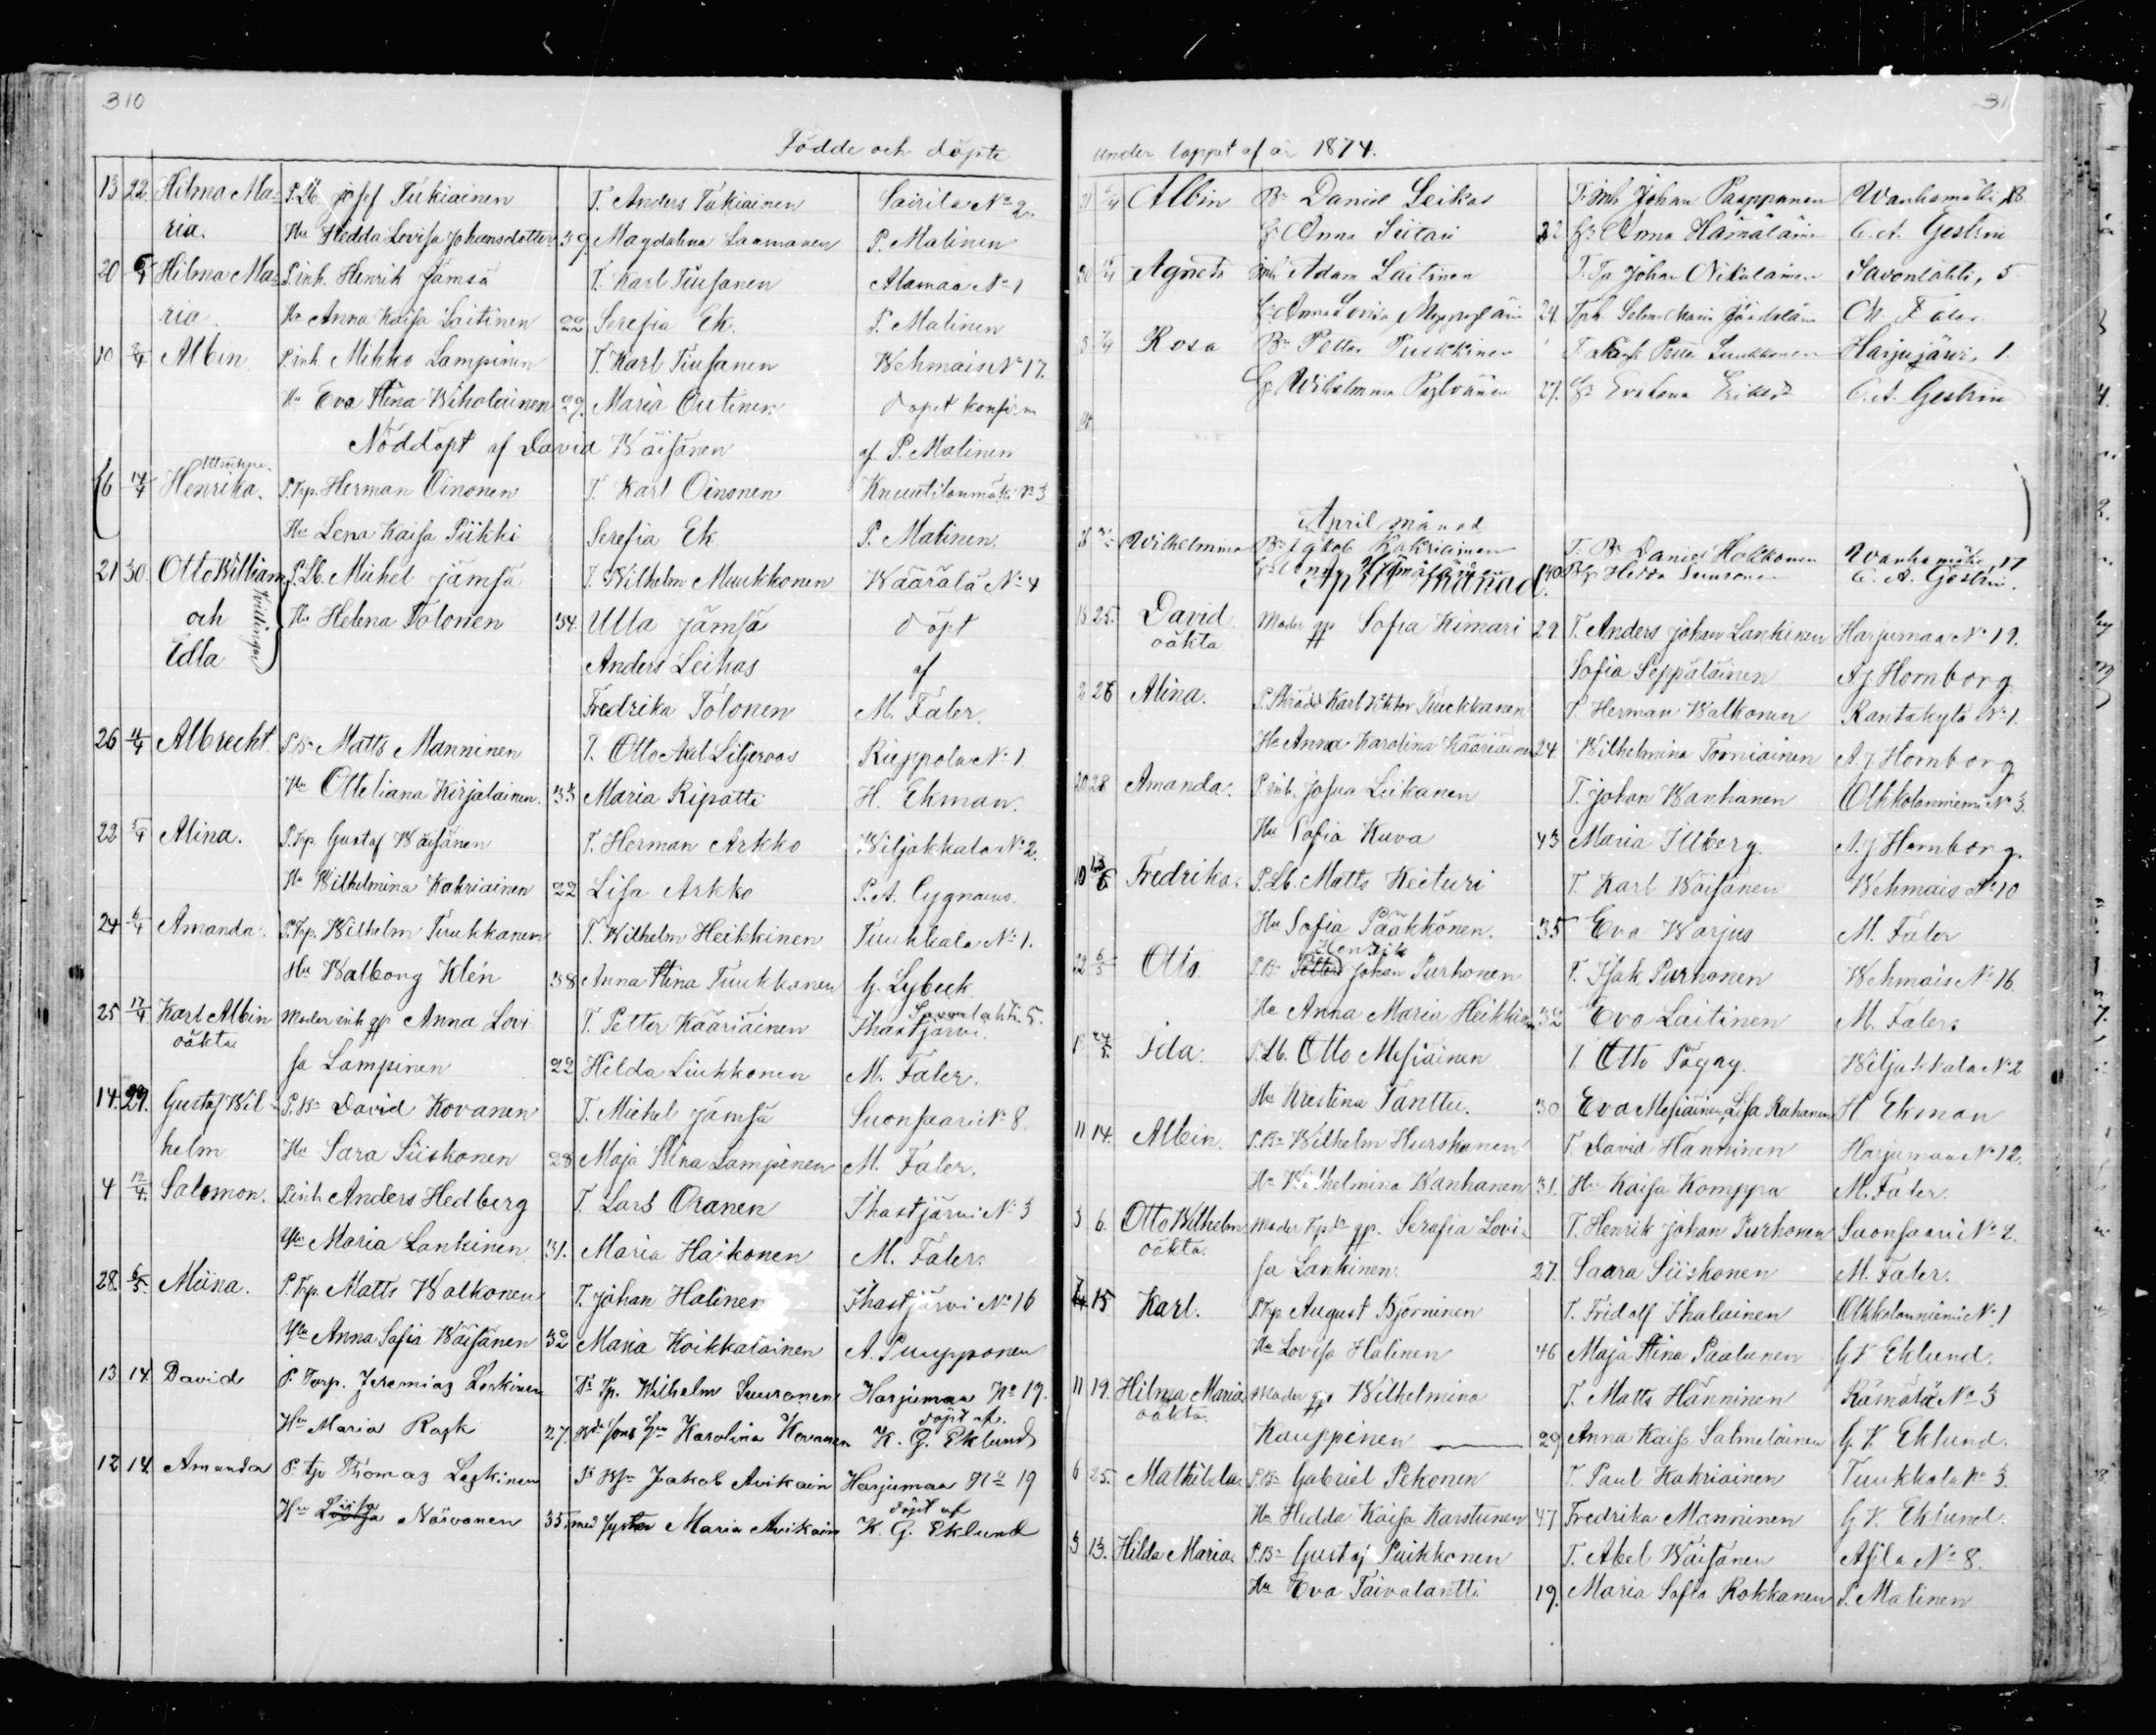 310
Födde och döpte
13 22. Hilma Ma= P.Lb. Josef Tukiainen T. Anders Tukiainen Sairila No 2.
ria. Hu Hedda Lovisa Johansdotter 39. Magdalena Laamanen P. Malinen
20 6/4 Hilma Ma= P.inh. Henrik Jämsä T. Karl Tiusanen Alamaa No 1
ria. Hu Anna Kaisa Laitinen 22 Serefia Ek. P. Malinen
10 Albin P.inh Mikko Lampinen T. Karl Tiusanen Wehmais No 17.
Hu Eva Stina Wiholainen 29. Maria Outinen döpet konfirm
Nöddöpt af David Wäisänen af P. Malinen
16 14/4 Henrika. P.Trp. Herman Oinonen T. Karl Oinonen Knuutilanmäki No 3
Hu Lena Kaisa Piikki Serefia Ek P. Malinen.
21 30. Otto William P.Lb. Michel Jämsä T. Wilhelm Muukkonen Wäärälä No 4
och Tvillingar Hu Helena Tolonen 34. Ulla Jämsä döpt
Edla Anders Leikas af
Fredrika Tolonen M. Faler.
26 4/4 Albrecht. P.Bn Matts Manninen T. Otto Axel Liljeroos Rieppola No 1.
Hu Otteliana Kirjalainen. 33 Maria Ripatti H. Ekman.
22 5/4 Alina. P.Trp. Gustaf Wäisänen T. Herman Arkko Wiljakkala No 2.
Hu Wilhelmina Kakriainen 22 Lisa Arkko P.A. Cygnaeus.
24 6/4 Amanda. P.Trp. Wilhelm Tuukkanen T. Wilhelm Heikkinen Tuukkala No 1.
Hu Walborg Klén 38 Anna Stina Tuukkanen G. Lybeck
25 12/4 Karl Albin Moder inh qp Anna Lovi T. Petter Kääriäinen Ihastjärvi. Savonlahti 5.
oäkta sa Lampinen 22 Hilda Liukkonen M. Faler.
14. 29. Gustaf Wil- P.Bn David Kovanen T. Michel Jämsä Suonsaari No 8.
helm Hu Sara Siiskonen 28 Maja Stina Lampinen M. Faler.
4 12/4. Salomon. P.inh Anders Hedberg T. Lars Oranen Ihastjärvi No 3
Hu Maria Lankinen 31. Maria Haikonen M. Faler.
28. 6/5. Miina. P.Trp. Matts Walkonen T. Johan Halinen Ihastjärvi No 16
Hu Anna Sofia Wäisänen 32 Maria Koikkalainen A. Puupponen
13 14. David P. Torp. Jeremias Leskinen Tr. Tp. Wilhelm Suuronen Harjumaa No 19.
Hu Maria Rask 27. Karolina Kovanen döpt af K. G. Eklund
12 14. Amanda P. tp Thomas Leskinen Jakob Avikain Harjumaa No 19
Hu Liisa Närvänen 35. med syster Maria Avikain döpt af K. G. Eklund
31
under loppet af år 1874.
21 Albin Bn Daniel Leikas T. inh Johan Paappanen Wanhamäki, 18.
Hu Anna Siitari 22 Hu Anna Hämäläin C. A. Geslin
Agneta inh Adam Laitinen T. Tp Johan Nikulainen Savonlahti, 5
Hu Anna Lovisa 24. M. Faler
Rosa Bn Petter Puskkinen T. Petter Liukkonen Harjujärvi, 1.
Hu Wilhelmina 27. Hu Eva Lena Eriksd C. A. Geslin
April månad
Wilhelmina Bn Jakob Kakriainen T. Bn Daniel Hokkanen Wanhamäki, 17
Hu Anna Hämäläinen Hedda C. A. Geslin.
April månad.
18 25. David Moder qp Sofia Kimari 29. T. Anders Johan Lankinen Harjumaa No 19.
oäkta Sofia Seppäläinen A J Hornborg
26 Alina. Karl Viktor Tuukkanen T. Herman Walkonen Rantakylä No 1.
Hu Anna Karolina Kääriäinen 24. Wilhelmina Torniainen A J Hornborg
20 28. Amanda. P.inh. Josua Liikanen T. Johan Wanhanen Olkkolanniemi No 3.
Hu Sofia Kuva 43 Maria Illberg. A J Hornborg.
10 Fredrika. P.Lb. Matts Keituri T. Karl Wäisänen Wehmais No 10
Hu Sofia Pääkkönen. 35 Eva Warjus M. Faler
22 6/5 Otto. P.Bn Henrik Johan Purhonen T. Isak Purhonen Wehmais No 16.
Hu Anna Maria Heikkinen 32 Eva Laitinen M. Faler.
Ida. P.Lb. Otto Mesiäinen T. Otto Wiljakkala No 2
Hu Kristina Tanttu. 30 Eva Mesiäinen, Lisa Rahanen H. Ekman
11 14. Albin. P.Bn Wilhelm Hurskanen T. David Hänninen Harjumaa No 12.
Hu Wilhelmina Wanhanen 31. Hu Kaisa Komppa M. Faler.
5 6. Otto Wilhelm Moder qp. Serafia Lovi- T. Henrik Johan Purhonen Suonsaari No 2.
oäkta. sa Lankinen. 27. Saara Siiskonen M. Faler.
15 Karl. P.Trp August Björninen T. Fridolf Ihalainen Olkkolanniemi No 1
Hu Lovisa Halinen 46 Maja Stina Paalanen G V Eklund.
11 19. Hilma Maria Moder qp Wilhelmina T. Matts Hänninen Rämälä No 3
oäkta. Kauppinen 29 Anna Kaisa Salmelainen G. V. Eklund.
6 25. Mathilda P.Bn Gabriel Pekonen T. Paul Kakriainen Tuukkala No 3.
Hu Hedda Kaisa Karstunen 47 Fredrika Manninen G. V. Eklund.
5 13. Hilda Maria. P.Bn Gustaf Puikkonen T. Abel Wäisänen Asila No 8.
Hu Eva Taivalantti 19. Maria Sofia Rokkanen P. Malinen